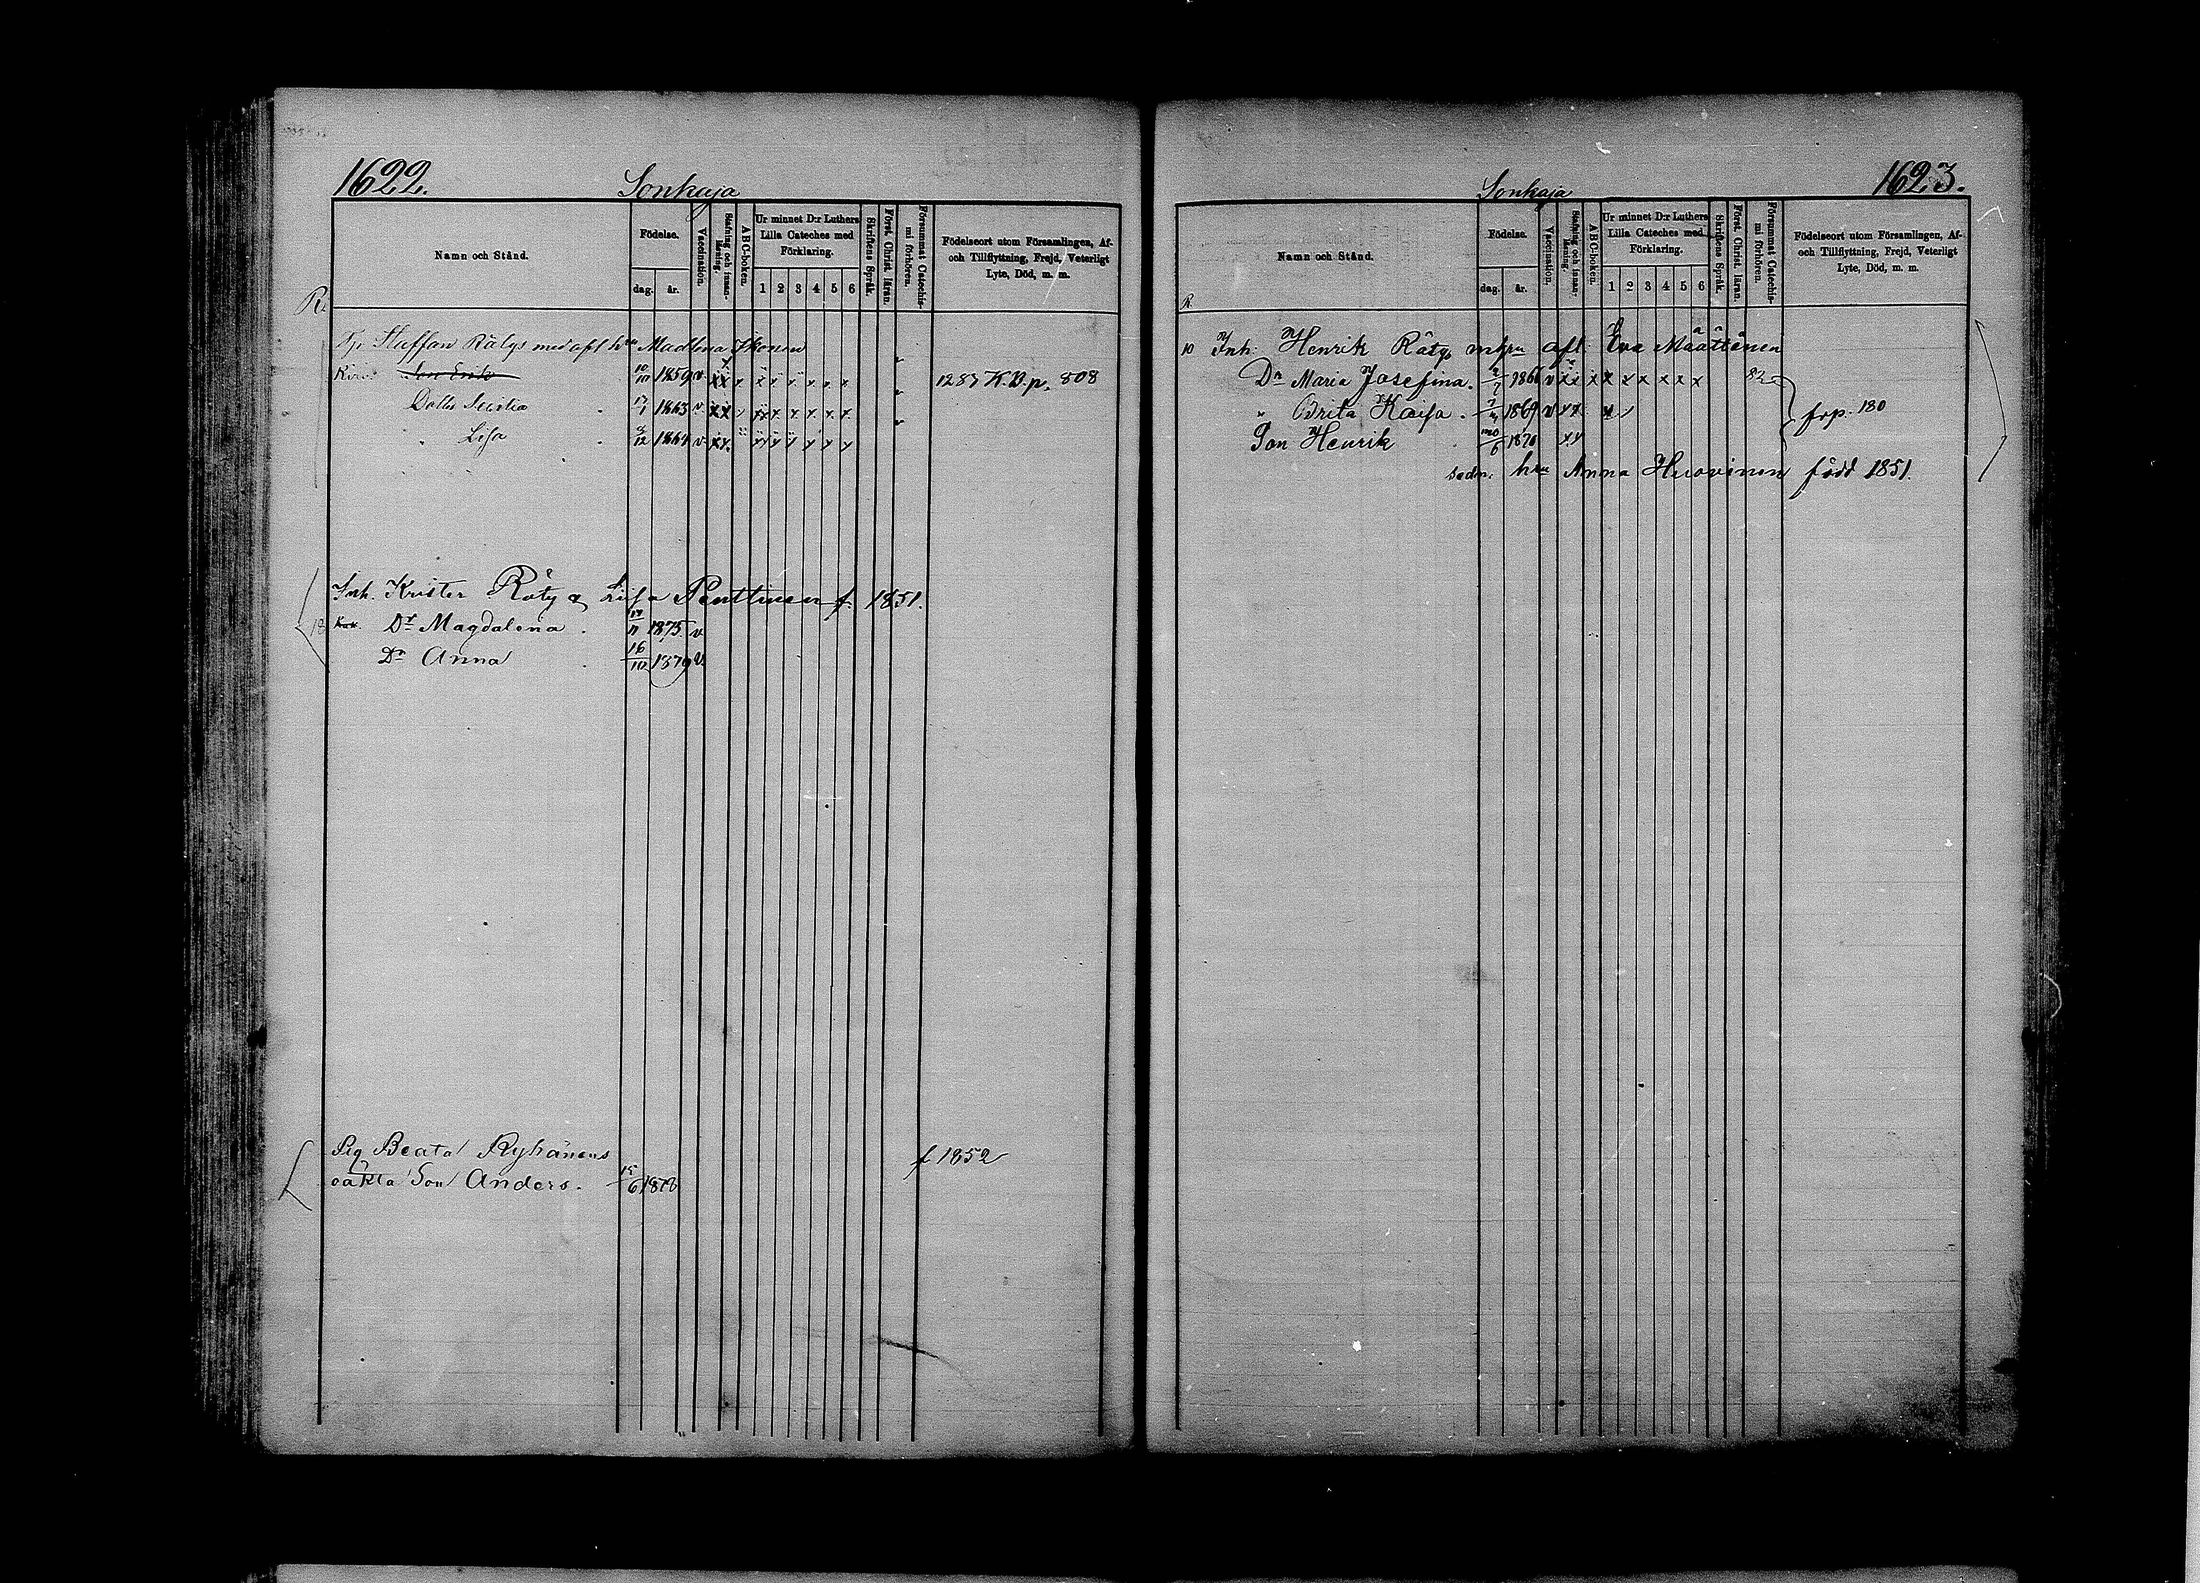 1622.
Sonkaja
Namn och Stånd.
Födelse.
dag. år.
Vaccination.
Stafning och innanläsning.
ABC-boken.
Ur minnet D:r Luthers Lilla Cateches med Förklaring.
1 2 3 4 5 6
Skriftens Språk.
Först. Christ. läran.
Försummat Catechismi förhören.
Födelseort utom Församlingen, Af- och Tillflyttning, Frejd, Veterligt Lyte, Död, m. m.
R.
Staffan Rätys med afl hru Madlena Ikonen
Son Erik 10/10 1859 v 1283 K.B.p. 808
Dottr 17/1 1863 v
" Lisa 1864 v
Inh. Krister Räty & Lisa Penttinen f. 1851.
18 Dr Magdalena. 1875 v
Dr Anna 16/10 1879 v
Pig Beata Ryhänens f 1852
oäkta Son Anders. 15/6 1878
1623.
Sonkaja
Namn och Stånd.
Födelse.
dag. år.
Vaccination.
Stafning och innanläsning.
ABC-boken.
Ur minnet D:r Luthers Lilla Cateches med Förklaring.
1 2 3 4 5 6
Skriftens Språk.
Först. Christ. läran.
Försummat Catechismi förhören.
Födelseort utom Församlingen, Af- och Tillflyttning, Frejd, Veterligt Lyte, Död, m. m.
R.
10 Inh. Henrik Rätys m hru afl. Eva Määttänen
Dr Maria Josefina. 1866 v x x x x x x x x x 82
" Brita Kaisa. 1869 v x x frp. 180
Son Henrik 1876 x x
sedn. hru Anna Huovinen född 1851.